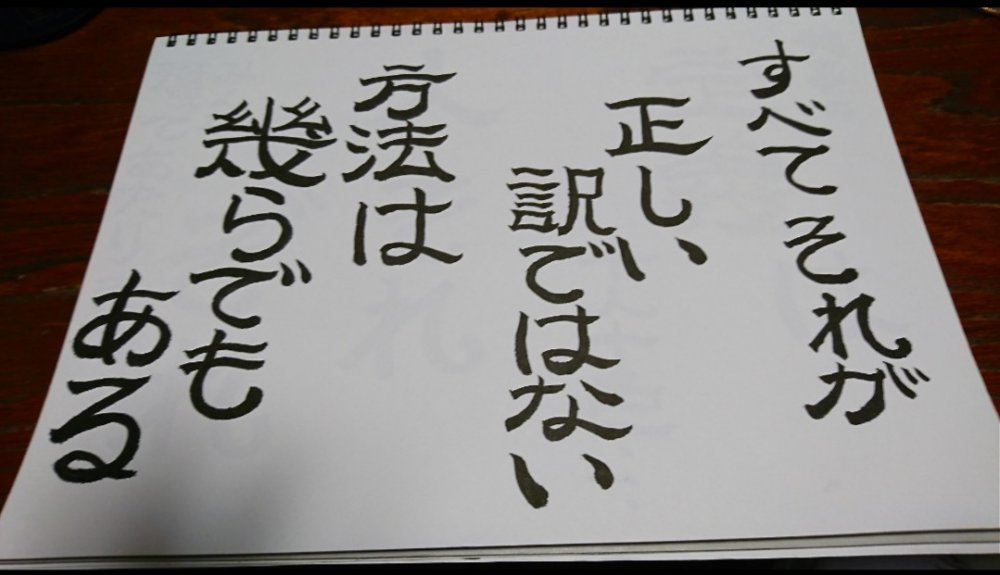 すべてそれが
正しい
訳ではない
方法は
幾らでも
ある